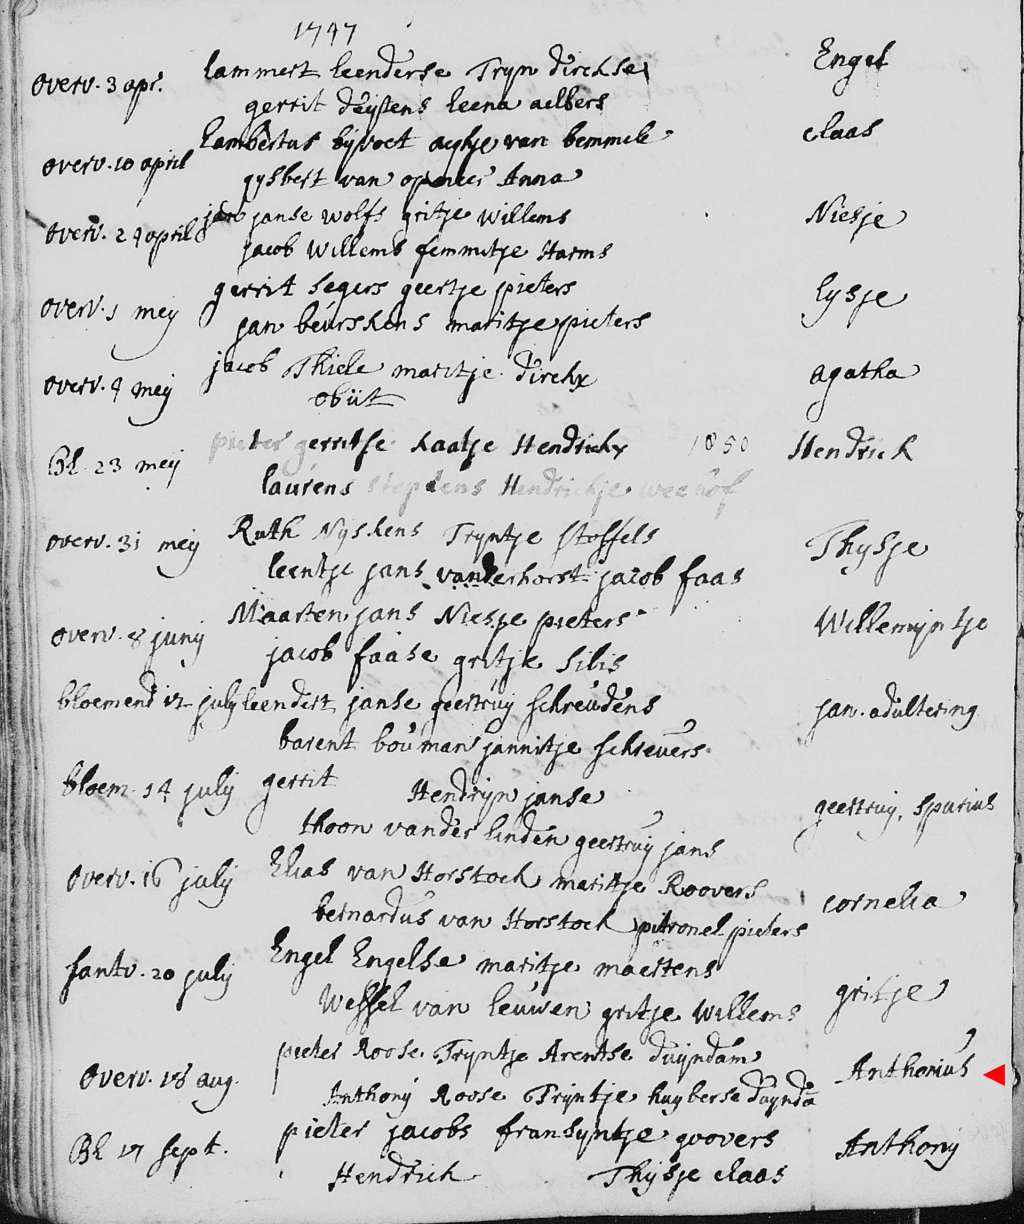 1747
overv. 3 apr. lammert leenderse Tryn dirckse Engel
gerrit leena aelbers
overv. 10 april Lambertus bijvoet aeghje van bemmele claas
gysbert van Anna
overv. 24 april jan janse wolfs gritje willems Niesje
jacob Willems femmitje Harms
overv. 1 meij gerrit segers geertje pieters lysje
jan beurskens maritje pieters
overv. 4 meij jacob Thiele maritje dirckx agatha
obiit
Bl. 23 meij pieter gerritse kaatje Hendrickx 1850 Hendrick
laurens stephens Hendrickje
overv. 31 meij Ruth Nyskens Tryntje stoffels Thysje
leentje jans vanderhorst jacob faas
overv. 8 junij Maarten jans Niesje pieters Willemijntje
jacob faase gritje silis
bloemend 12 july leendert janse geertruij schreudens jan. adultering
barent bouman jannitje schreuers
bloem. 14 julij gerrit Hendryn janse geertruij, spurius
thoon vander linden geertruij jans
overv. 16 julij Elias van Horstock maritje Roovers cornelia
bernardus van Horstock pitronel pieters
santv. 20 julij Engel Engelse maritje maertens gritje
Wessel van leuwen gritje Willems
overv. 18 aug. pieter Roose Tryntje Arentse duijndam Anthonius
Anthonij Roose Trijntje huijberse duijndā
Bl 17 sept. pieter jacobs fransyntje goovers Anthonij
Hendrick Thijsje claas